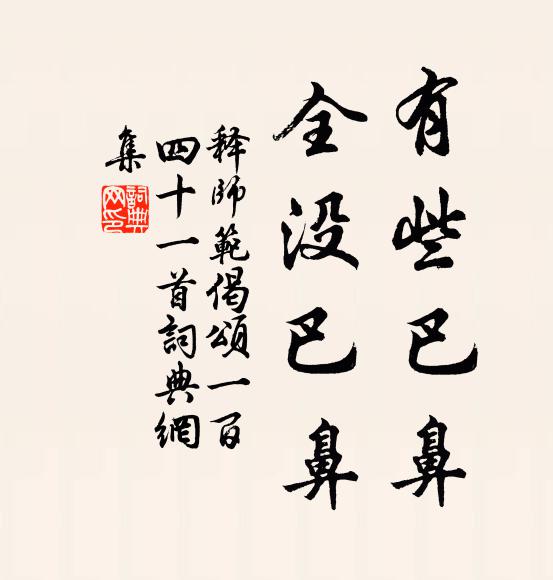 有些巴鼻
全没巴鼻
释师範偈頌一百
四十一首詞典網
集
詞典网印